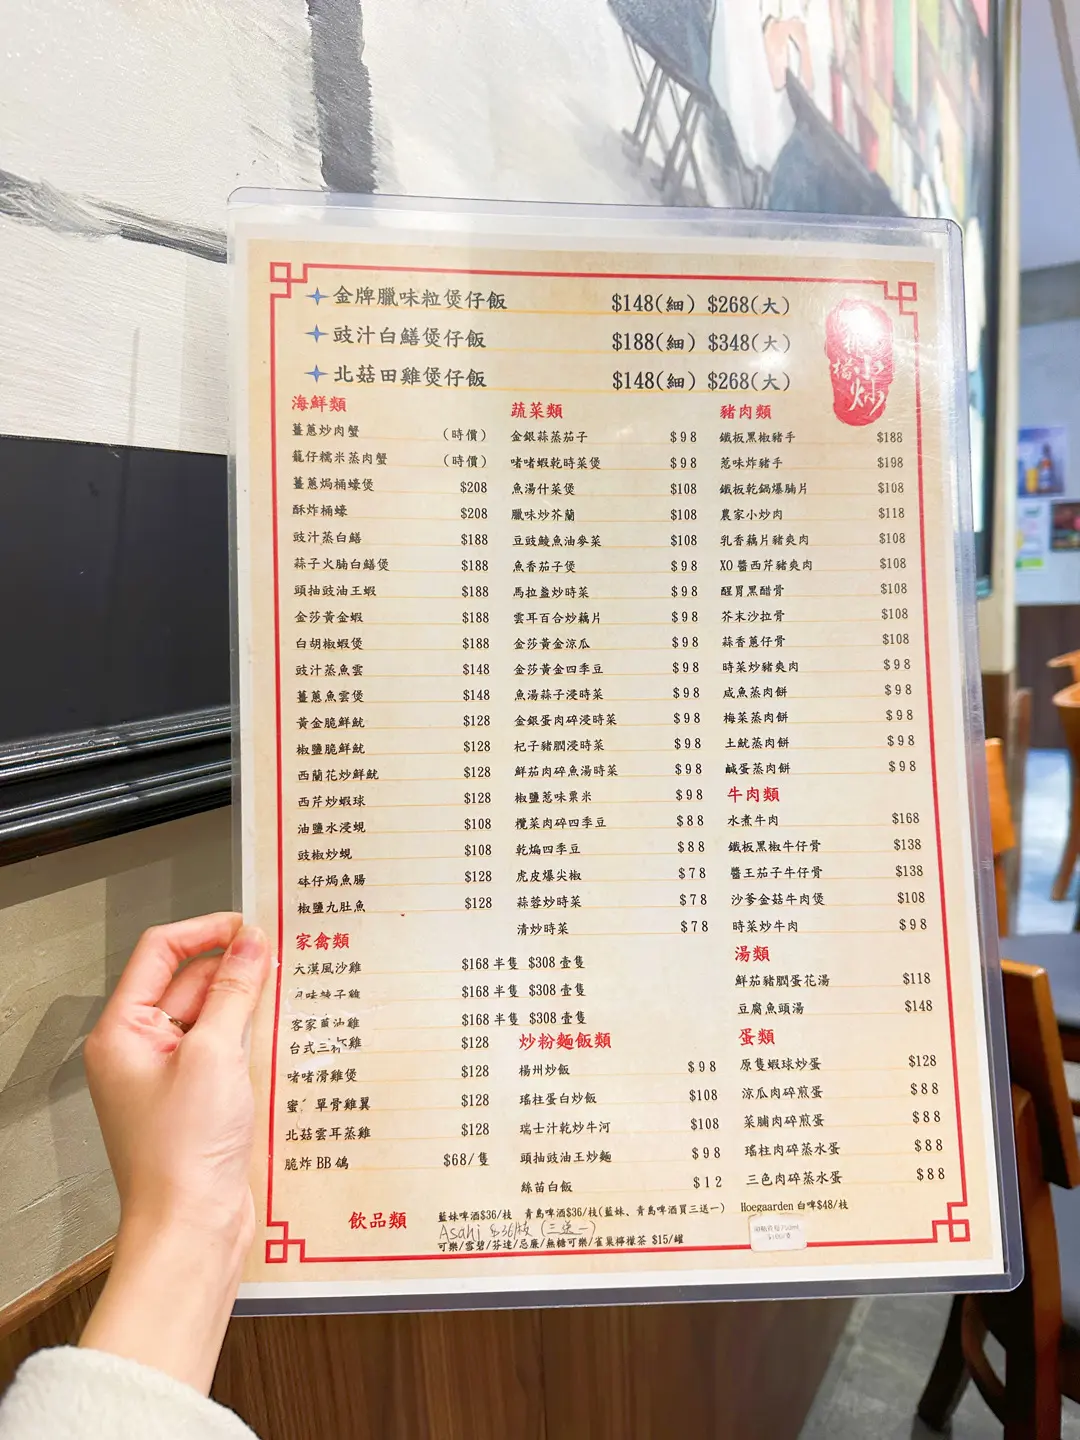 金牌臘味粒煲仔飯 $148(細) $268(大)
豉汁白鱔煲仔飯 $188(細) $348(大)
北菇田雞煲仔飯 $148(細) $268(大)
小炒
海鮮類
薑蔥炒肉蟹 (時價)
籠仔糯米蒸肉蟹 (時價)
薑蔥焗桶蠔煲 $208
酥炸桶蠔 $208
豉汁蒸白鱔 $188
蒜子火腩白鱔煲 $188
頭抽豉油王蝦 $188
金莎黃金蝦 $188
白胡椒蝦煲 $188
豉汁蒸魚雲 $148
薑蔥魚雲煲 $148
黃金脆鮮魷 $128
椒鹽脆鮮魷 $128
西蘭花炒鮮魷 $128
西芹炒蝦球 $128
油鹽水浸蜆 $108
豉椒炒蜆 $108
砵仔焗魚腸 $128
椒鹽九肚魚 $128
蔬菜類
金銀蒜蒸茄子 $98
啫啫蝦乾時菜煲 $98
魚湯什菜煲 $108
臘味炒芥蘭 $108
豆豉鯪魚油麥菜 $108
魚香茄子煲 $98
馬拉盞炒時菜 $98
雲耳百合炒藕片 $98
金莎黃金涼瓜 $98
金莎黃金四季豆 $98
魚湯蒜子浸時菜 $98
金銀蛋肉碎浸時菜 $98
杞子豬膶浸時菜 $98
鮮茄肉碎魚湯時菜 $98
椒鹽惹味粟米 $98
欖菜肉碎四季豆 $88
乾煸四季豆 $88
虎皮爆尖椒 $78
蒜蓉炒時菜 $78
清炒時菜 $78
豬肉類
鐵板黑椒豬手 $188
惹味炸豬手 $198
鐵板乾鍋爆腩片 $108
農家小炒肉 $118
乳香藕片豬爽肉 $108
XO 醬西芹豬爽肉 $108
醒胃黑醋骨 $108
芥末沙拉骨 $108
蒜香蔥仔骨 $108
時菜炒豬爽肉 $98
咸魚蒸肉餅 $98
梅菜蒸肉餅 $98
土魷蒸肉餅 $98
鹹蛋蒸肉餅 $98
牛肉類
水煮牛肉 $168
鐵板黑椒牛仔骨 $138
醬王茄子牛仔骨 $138
沙爹金菇牛肉煲 $108
時菜炒牛肉 $98
湯類
鮮茄豬膶蛋花湯 $118
豆腐魚頭湯 $148
家禽類
大漠風沙雞 $168 半隻 $308 壹隻
味辣子雞 $168 半隻 $308 壹隻
客家豉油雞 $168 半隻 $308 壹隻
台式三杯雞 $128
啫啫滑雞煲 $128
蜜 單骨雞翼 $128
北菇雲耳蒸雞 $128
脆炸 BB 鴿 $68/隻
炒粉麵飯類
楊州炒飯 $98
瑤柱蛋白炒飯 $108
瑞士汁乾炒牛河 $108
頭抽豉油王炒麵 $98
絲苗白飯 $12
蛋類
原隻蝦球炒蛋 $128
涼瓜肉碎煎蛋 $88
菜脯肉碎煎蛋 $88
瑤柱肉碎蒸水蛋 $88
三色肉碎蒸水蛋 $88
飲品類
藍妹啤酒$36/枝 青島啤酒$36/枝(藍妹、青島啤酒買三送一) Hoegaarden 白啤$48/枝
Asahi $36/枝 (三送一)
可樂/雪碧/芬達/忌廉/無糖可樂/雀巢檸檬茶 $15/罐